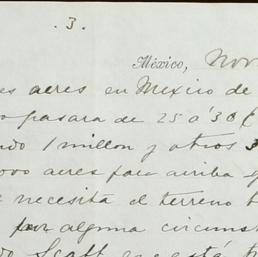 .3.
México, Nov
es aeres en Mexico de
pasara de 25 o' 30
ndo 1 millon y otros 3
000 aeres para arriba
necesita el terreno
por alguna circunst
do Scott